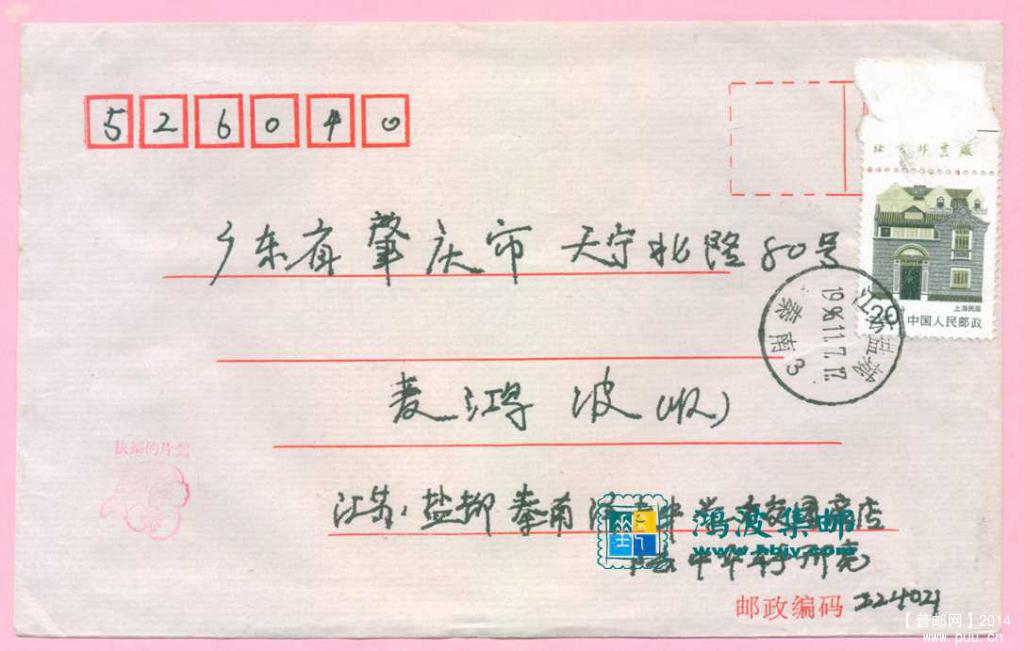 526040
北京邮票厂
广东省肇庆市 天宁北路80号
上海民居
20 中国人民邮政
江苏盐城
1996.11.7.17
秦南 3
麦鸿波(收)
江苏、盐城 秦南
鸿波集邮
www.hbjy.com
邮政编码 224021
【普邮网】2014
www.puu.cn